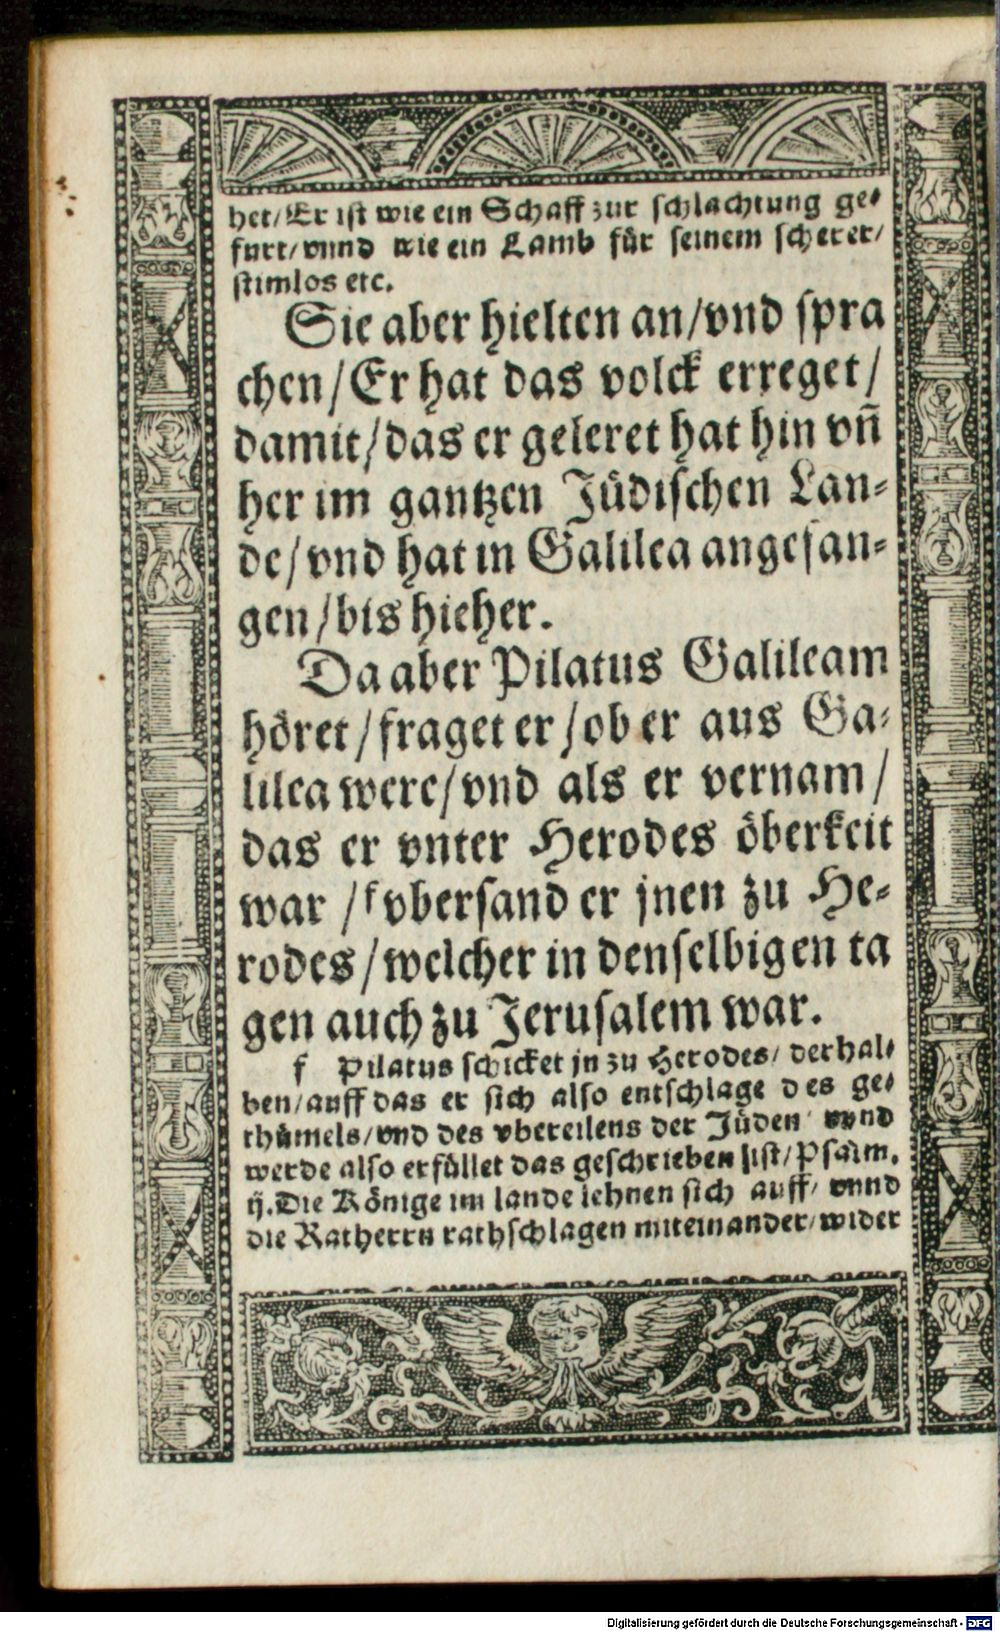 het/Er ist wie ein Schaff zur schlachtung ge-
furt/vnnd wie ein Lamb für seinem scherer/
stimlos etc.
Sie aber hielten an/vnd spra
chen/Er hat das volck erreget/
damit/das er geleret hat hin vñ
her im gantzen Jüdischen Lan-
de/vnd hat in Galilea angefan-
gen/bis hieher.
Da aber Pilatus Galileam
höret/fraget er/ob er aus Ga-
lilea were/vnd als er vernam/
das er vnter Herodes öberkeit
war/ f vbersand er jnen zu He-
rodes/welcher in denselbigen ta
gen auch zu Jerusalem war.
f Pilatus schicket jn zu Herodes/ derhal-
ben/auff das er sich also entschlage des ge-
thümels/vnd des vbereilens der Jüden/ vnnd
werde also erfüllet das geschrieben list/Psalm.
ij.Die Könige im lande lehnen sich auff/ vnnd
die Ratherrn rathschlagen miteinander/wider
Digitalisierung gefördert durch die Deutsche Forschungsgemeinschaft - DFG